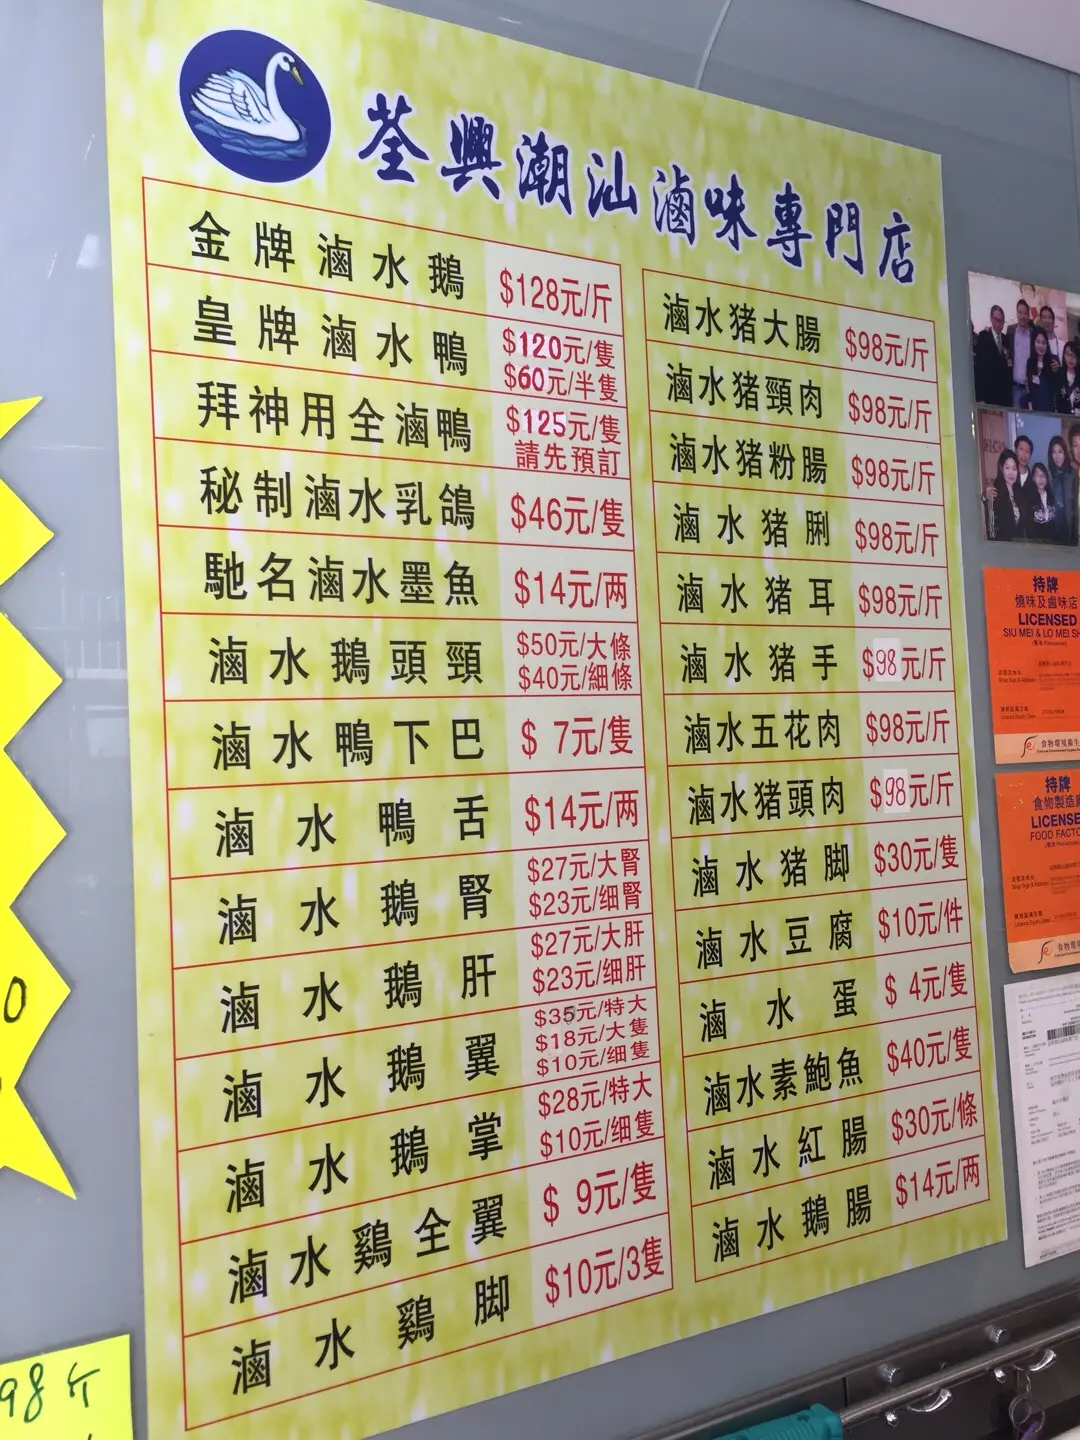 荃興潮汕滷味專門店
金牌滷水鵝 $128元/斤
皇牌滷水鴨 $120元/隻
$60元/半隻
拜神用全滷鴨 $125元/隻
請先預訂
秘制滷水乳鴿 $46元/隻
馳名滷水墨魚 $14元/两
滷水鵝頭頸 $50元/大條
$40元/細條
滷水鴨下巴 $ 7元/隻
滷水鴨舌 $14元/两
滷水鵝腎 $27元/大腎
$23元/细腎
滷水鵝肝 $27元/大肝
$23元/细肝
滷水鵝翼 $35元/特大
$18元/大隻
$10元/细隻
滷水鵝掌 $28元/特大
$10元/细隻
滷水鷄全翼 $ 9元/隻
滷水鷄脚 $10元/3隻
滷水猪大腸 $98元/斤
滷水猪頸肉 $98元/斤
滷水猪粉腸 $98元/斤
滷水猪脷 $98元/斤
滷水猪耳 $98元/斤
滷水猪手 $98元/斤
滷水五花肉 $98元/斤
滷水猪頭肉 $98元/斤
滷水猪脚 $30元/隻
滷水豆腐 $10元/件
滷水蛋 $ 4元/隻
滷水素鮑魚 $40元/隻
滷水紅腸 $30元/條
滷水鵝腸 $14元/两
持牌
燒味及鹵味店
LICENSED
SIU MEI & LO MEI SH
持牌
食物製造
LICENSE
FOOD FACTO
0
98 斤